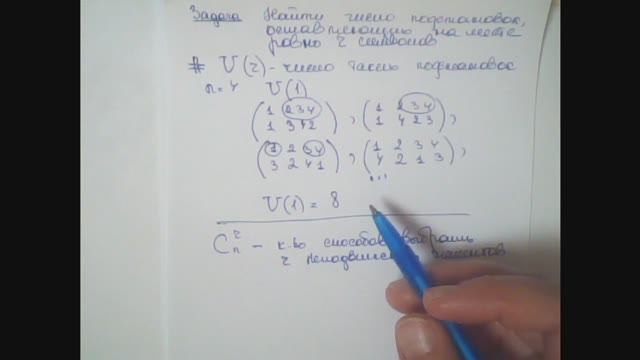 Задача Найти число подстановок,
оставляющих на месте
ровно r символов
# U(r) - число таких подстановок
n=4 U(1)
(1 2 3 4 / 1 3 4 2), (1 2 3 4 / 1 4 2 3),
(1 2 3 4 / 3 2 4 1), (1 2 3 4 / 4 2 1 3),
...
U(1) = 8
C_n^r - к-во способов выбрать
r неподвижных элементов